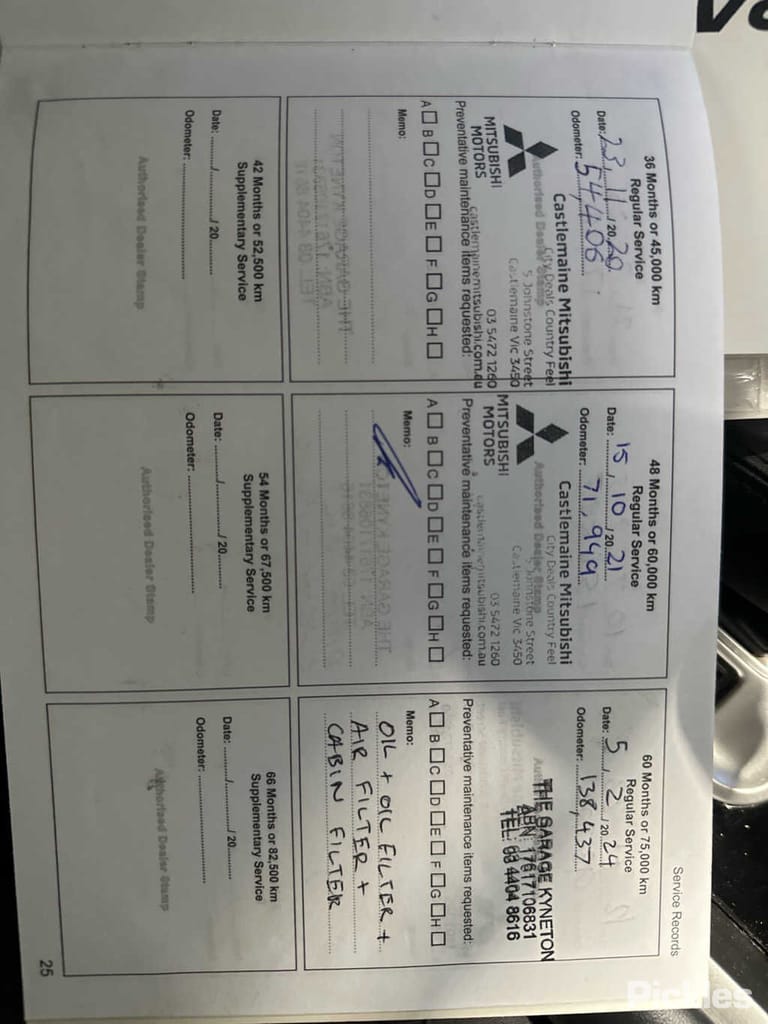 Service Records
36 Months or 45,000 km
Regular Service
Date: 23/11/2020
Odometer: 54,406
Castlemaine Mitsubishi
City Deals Country Feel
Authorised Dealer Stamp
5 Johnstone Street
Castlemaine Vic 3450
MITSUBISHI
MOTORS
03 5472 1260
castlemainemitsubishi.com.au
Preventative maintenance items requested:
A B C D E F G H
Memo:
48 Months or 60,000 km
Regular Service
Date: 15/10/2021
Odometer: 71,949
Castlemaine Mitsubishi
City Deals Country Feel
Authorised Dealer Stamp
5 Johnstone Street
Castlemaine Vic 3450
MITSUBISHI
MOTORS
03 5472 1260
castlemainemitsubishi.com.au
Preventative maintenance items requested:
A B C D E F G H
Memo:
60 Months or 75,000 km
Regular Service
Date: 5/2/2024
Odometer: 138,437
THE GARAGE KYNETON
ABN: 17617106831
TEL: 03 4404 8616
Preventative maintenance items requested:
A B C D E F G H
Memo:
OIL + OIL FILTER +
AIR FILTER +
CABIN FILTER
42 Months or 52,500 km
Supplementary Service
Date: ........../........../ 20..........
Odometer: ..............................
Authorised Dealer Stamp
54 Months or 67,500 km
Supplementary Service
Date: ........../........../ 20..........
Odometer: ..............................
Authorised Dealer Stamp
66 Months or 82,500 km
Supplementary Service
Date: ........../........../ 20..........
Odometer: ..............................
Authorised Dealer Stamp
25
Pickles